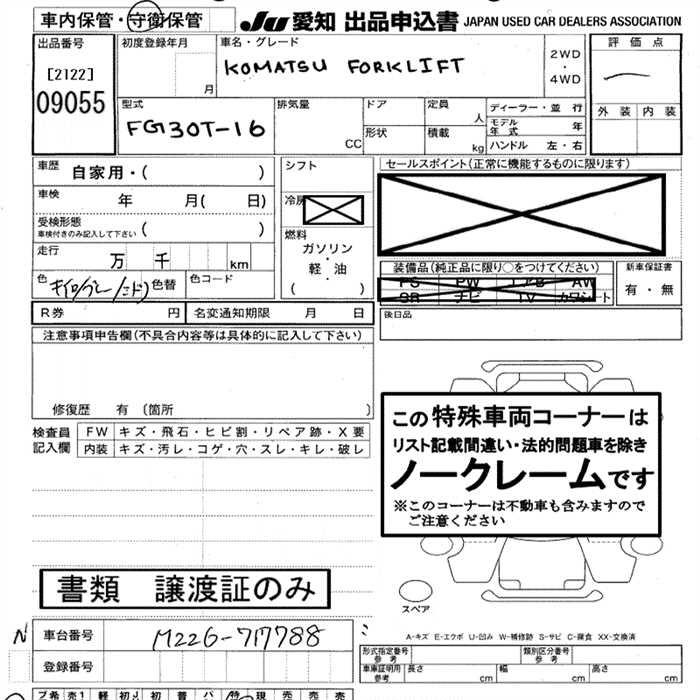 車内保管・守衛保管 JU 愛知 出品申込書 JAPAN USED CAR DEALERS ASSOCIATION
出品番号
[2122]
09055
初度登録年月
月
車名・グレード
KOMATSU FORKLIFT
2WD
・
4WD
評価点
外装 内装
型式
FG30T-16
排気量
CC
ドア
形状
定員
人
積載
kg
ディーラー・並行
モデル年式 年
ハンドル 左・右
車歴 自家用・( )
車検 年 月( 日)
受検形態
車検付きのみ記入して下さい ( )
走行 万 千 km
色 色替 色コード
シフト
冷房
燃料
ガソリン
・
軽・油
( )
セールスポイント(正常に機能するものに限ります)
装備品(純正品に限り○をつけてください)
PS PW エアB AW
SR ナビ TV カワシート
新車保証書
有・無
R券 円 名変通知期限 月 日
後日品
注意事項申告欄(不具合内容等は具体的に記入して下さい)
修復歴 有(箇所 )
検査員
記入欄
FW キズ・飛石・ヒビ割・リペア跡・X要
内装 キズ・汚レ・コゲ・穴・スレ・キレ・破レ
この特殊車両コーナーは
リスト記載間違い・法的問題車を除き
ノークレームです
※このコーナーは不動車も含みますので
ご注意ください
書類 譲渡証のみ
スペア
N 車台番号 M226-717788
登録番号
A-キズ E-エクボ U-凹み W-補修跡 S-サビ C-腐食 XX-交換済
形式指定番号
参考
類別区分番号
参考
車車証明用
参考
長さ cm 幅 cm 高さ cm